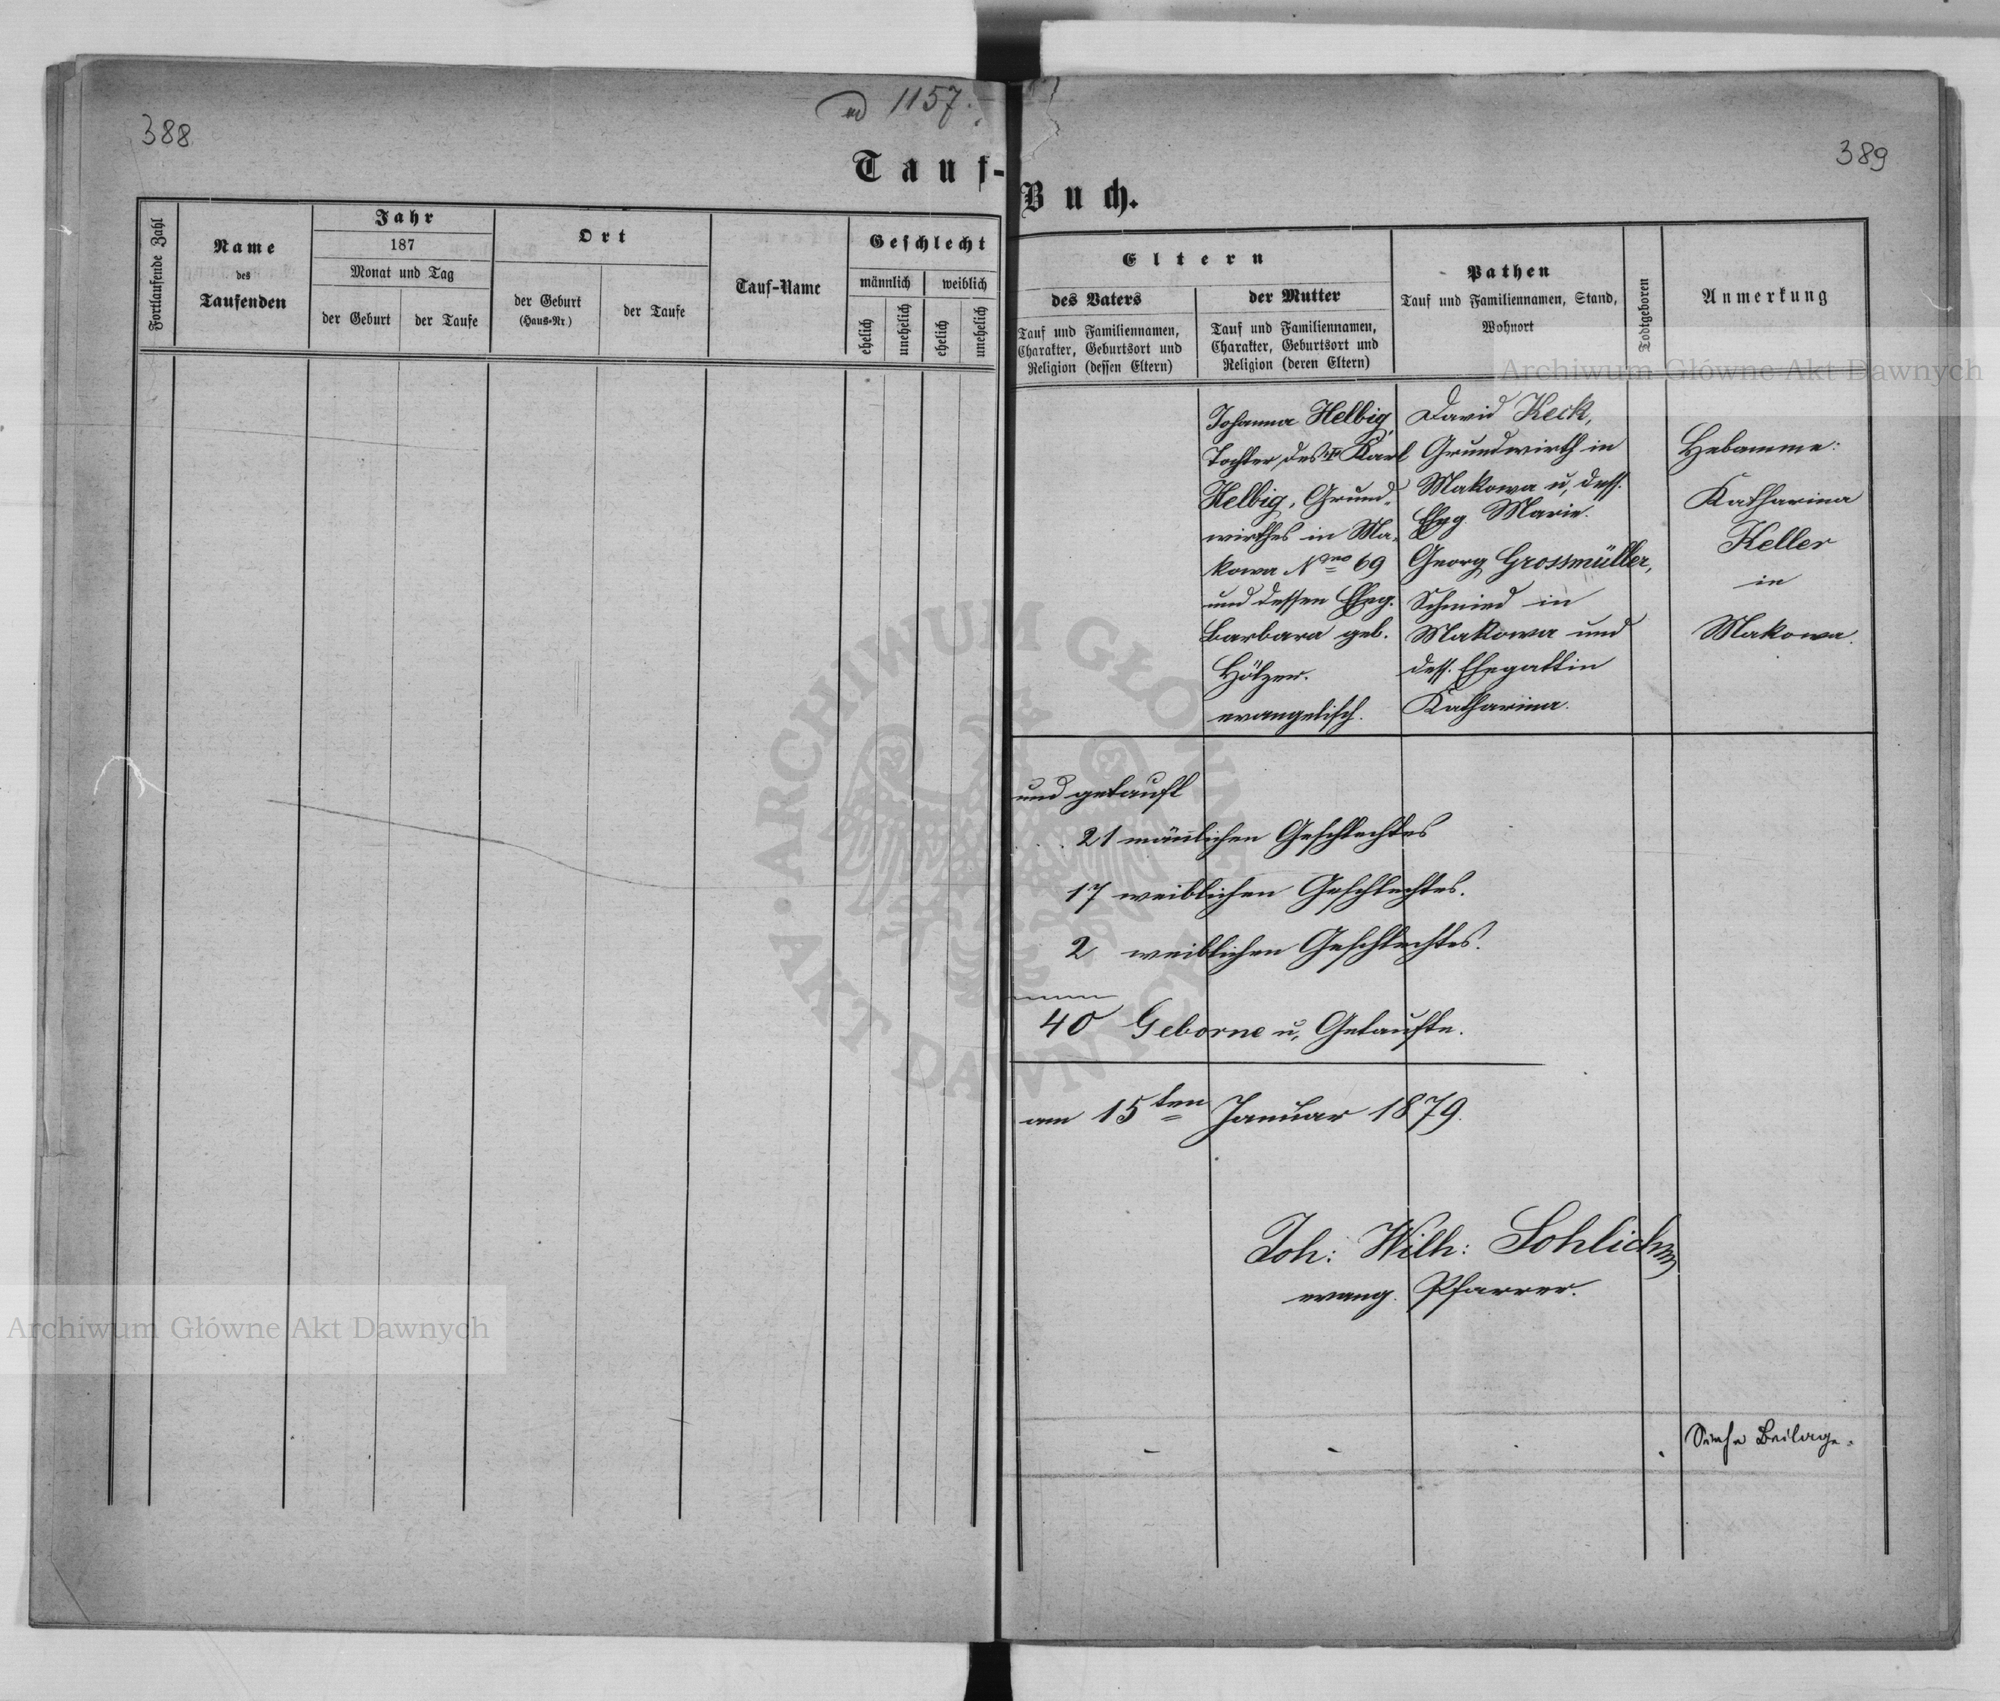 388
ad 1157.
389
Tauf-
Buch.
Fortlaufende Zahl
Name
des
Taufenden
Jahr
187
Monat und Tag
der Geburt
der Taufe
Ort
der Geburt
(Haus-Nr.)
der Taufe
Tauf-Name
Geschlecht
männlich
weiblich
ehelich
unehelich
ehelich
unehelich
Eltern
des Vaters
Tauf und Familiennamen,
Charakter, Geburtsort und
Religion (dessen Eltern)
der Mutter
Tauf und Familiennamen,
Charakter, Geburtsort und
Religion (deren Eltern)
Pathen
Tauf und Familiennamen, Stand,
Wohnort
Todtgeboren
Anmerkung
Johanna Helbig,
Tochter des † Karl
Helbig, Grund-
wirthes in Ma-
kowa Nro 69
und dessen Eheg.
Barbara geb.
Hölzer.
evangelisch.
David Keck,
Grundwirth in
Makowa u. dess.
Eheg. Marie.
Georg Grossmüller,
Schmied in
Makowa und
dess. Ehegattin
Katharina.
Hebamme:
Katharina
Keller
in
Makowa.
und getauft
21 männlichen Geschlechtes
17 weiblichen Geschlechtes.
2 weiblichen Geschlechtes.
40 Geborne u. Getaufte.
am 15ten Januar 1879.
Joh: Wilh:
evang. Pfarrer.
Siehe Beilage.
Archiwum Główne Akt Dawnych
Archiwum Główne Akt Dawnych
ARCHIWUM GŁÓWNE
AKT DAWNYCH